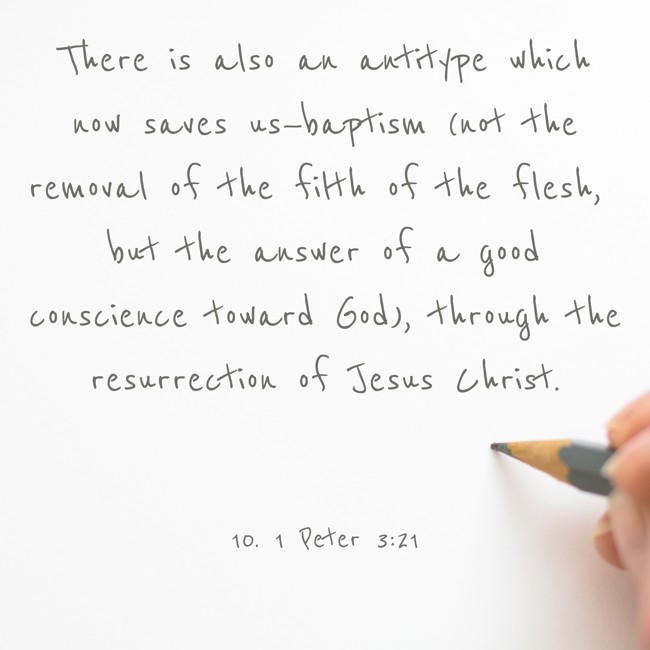 There is also an antitype which
now saves us—baptism (not the
removal of the filth of the flesh,
but the answer of a good
conscience toward God), through the
resurrection of Jesus Christ.
10. 1 Peter 3:21